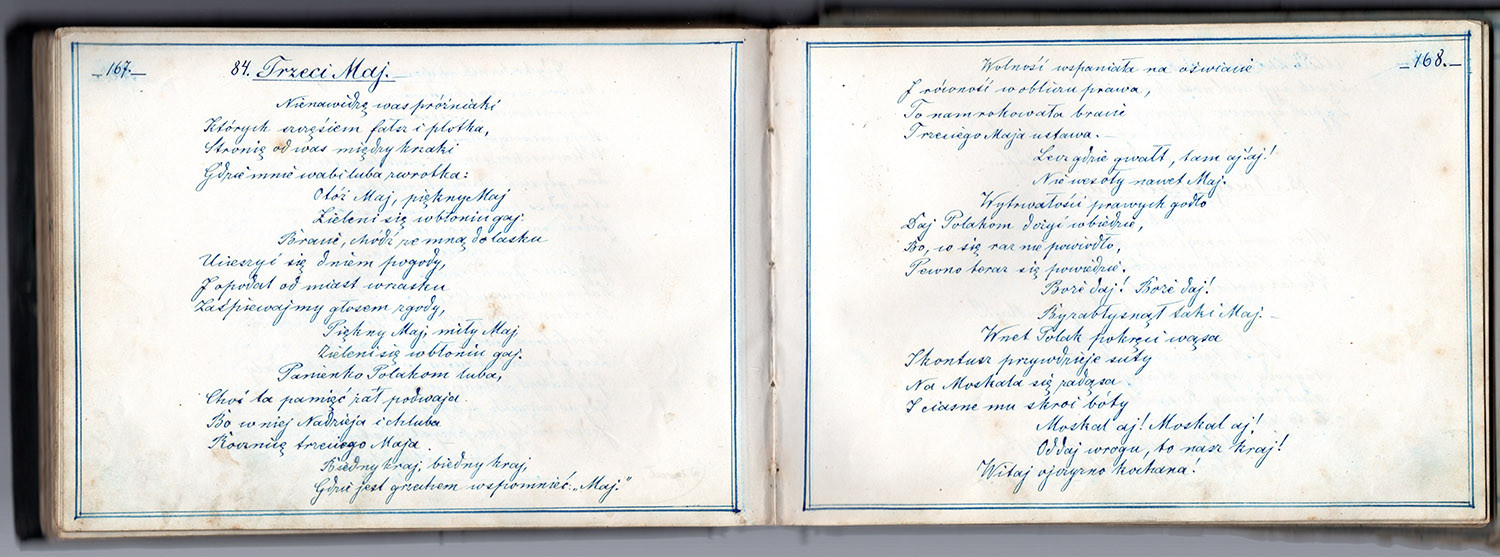 167.
84. Trzeci Maj.
Nienawidzę was próżniaki
Których szczęściem fałsz i plotka,
Stronię od was między krzaki
Gdzie mnie wabi luba zwrotka:
Otóż Maj, piękny Maj
Zieleni się w błoniu gaj.
Bracie, chódź ze mną do lasku
Ucieszyć się dniem pogody,
I opodal od miast wrzasku
Zaśpiewajmy głosem zgody,
Piękny Maj, miły Maj
Zieleni się w błoniu gaj.
Panienko Polakom luba,
Choć ta pamięć żal podwaja
Bo w niej Nadzieja i chluba
Rocznicę trzeciego Maja
Biedny kraj, biedny kraj,
Gdzie jest grzechem wspomnieć: „Maj."
168.
Wolność wspaniała na oświacie
I równość w obliczu prawa,
To nam rokowała bracie
Trzeciego Maja ustawa.
Lecz gdzie gwałt, tam aj! aj!
Nie wesoły nawet Maj.
Wytrwałości prawych godło
Daj Polakom dożyć w biedzie,
Bo, co się raz nie powiodło,
Pewno teraz się powiedzie.
Boże daj! Boże daj!
By zabłysnął taki Maj.
Wnet Polak pokręci wąsa
I kontusz przywdzieje suty
Na Moskala się zadąsa
I ciasne mu skroi bóty
Moskal aj! Moskal aj!
Oddaj wrogu, to nasz kraj!
Witaj ojczyzno kochana!